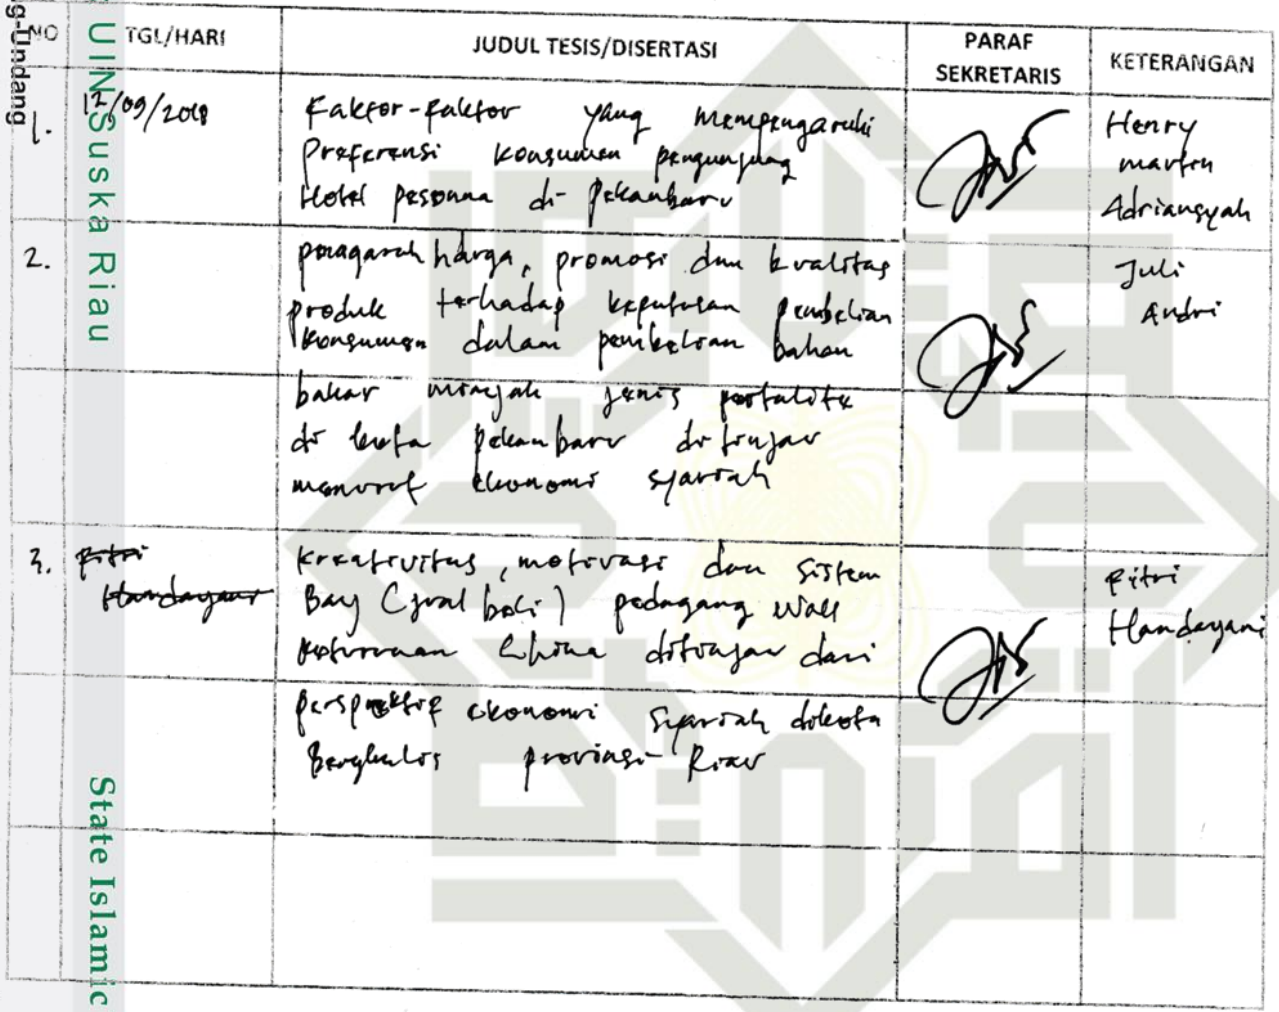 g-Undang
UIN Suska Riau
State Islamic
NO TGL/HARI JUDUL TESIS/DISERTASI PARAF SEKRETARIS KETERANGAN
1. 12/09/2018 Faktor-faktor yang mempengaruhi Henry
Preferensi konsumen pengunjung martin
Hotel pesonna di Pekanbaru Adriansyah
2. pengaruh harga, promosi dan kualitas Juli
produk terhadap keputusan pembelian Andri
konsumen dalam pembelian bahan
bakar minyak jenis pertalite
di kota pekanbaru ditinjau
menurut ekonomi syariah
3. Fitri kreativitas, motivasi dan sistem Fitri
Handayani Bay (jual beli) pedagang Wall Handayani
keturunan China ditinjau dari
perspektif ekonomi Syariah dikota
Bengkalis provinsi Riau